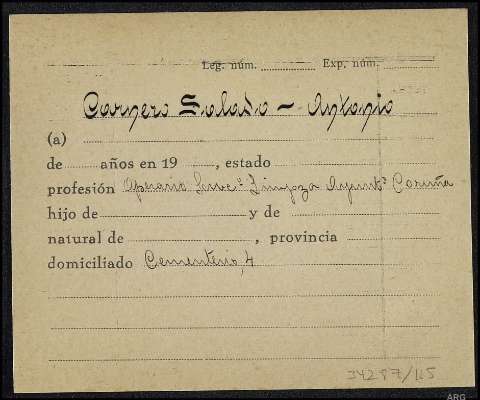 Leg. núm. Exp. núm.
Carnero Salado - Antonio
(a)
de años en 19 , estado
profesión Operario Servº Limpieza Ayuntº Coruña
hijo de y de
natural de , provincia
domiciliado Cementerio, 4
34287/115
ARG